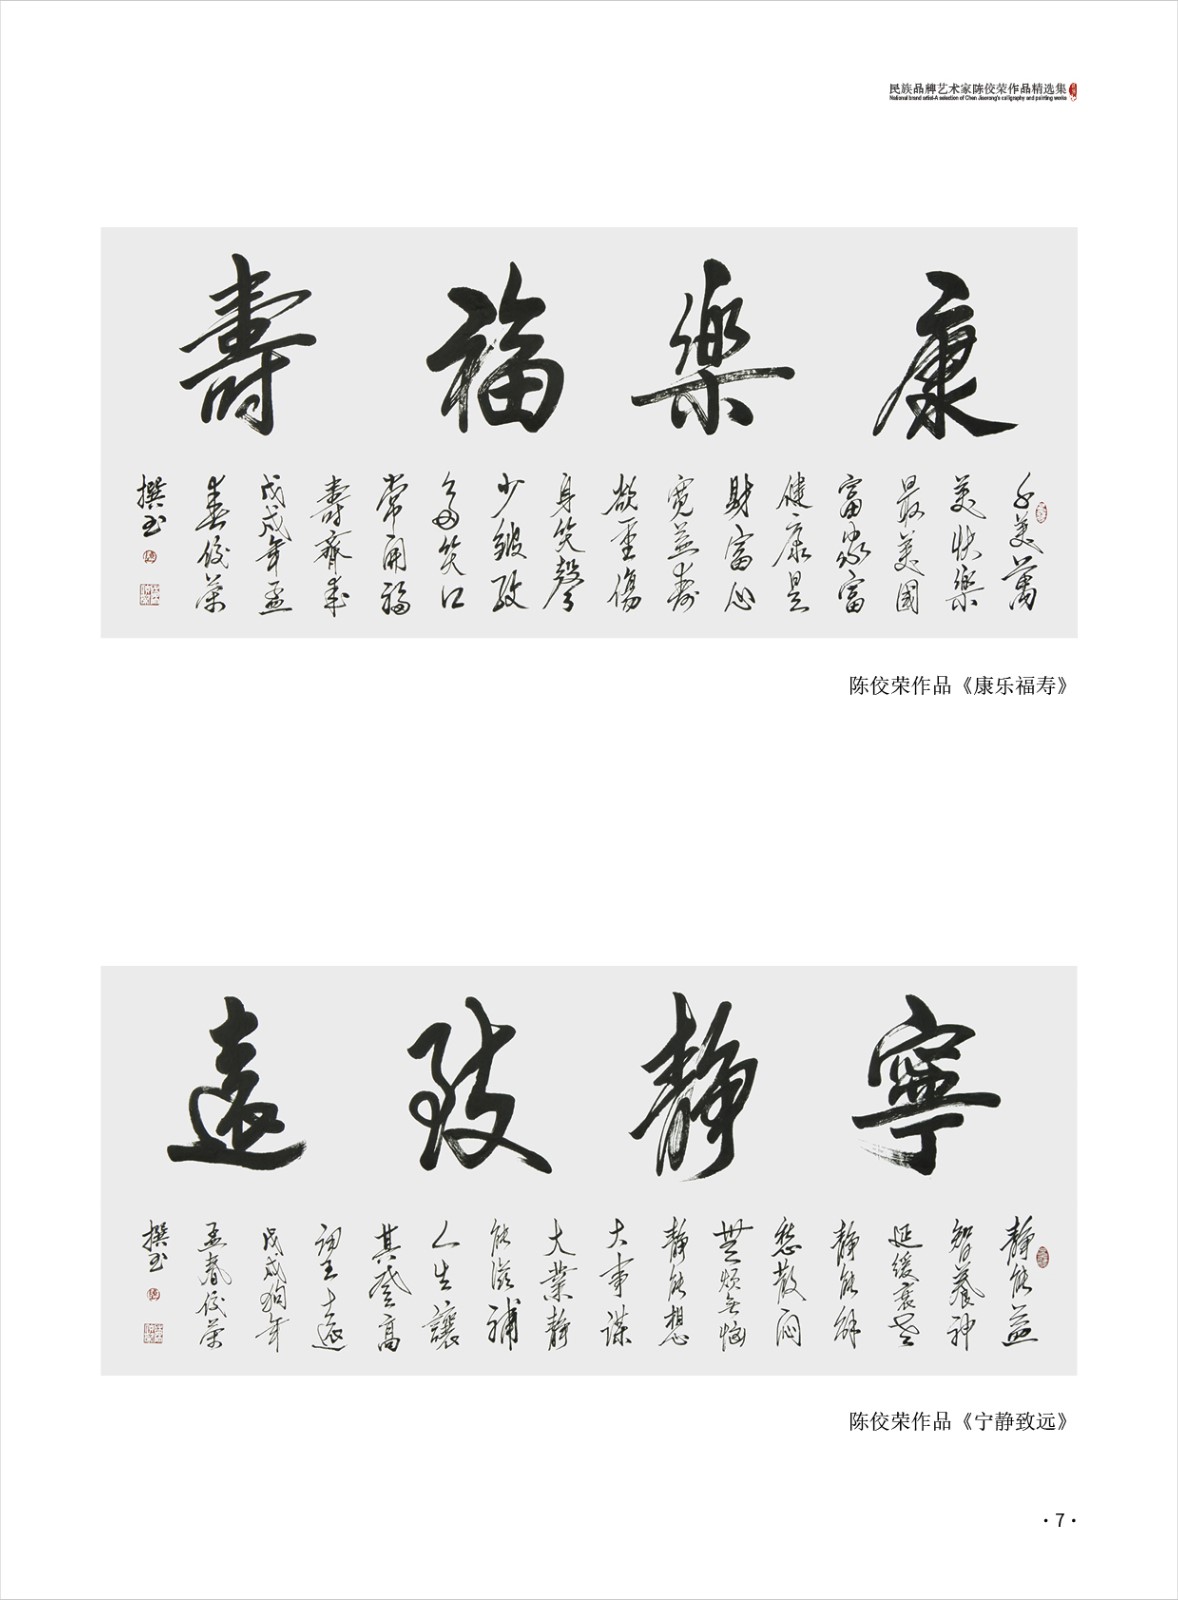 民族品牌艺术家陈佼荣作品精选集
National brand artist-A selection of Chen Jiaorong's calligraphy and painting works
康樂福壽
千美萬
美快樂
最美國
富家富
健康是
財富心
寬益壽
欲重傷
身笑聲
少皺紋
多笑口
常開福
壽齊來
戊戌年孟
春佼荣
撰书
陈佼荣作品《康乐福寿》
寧静致遠
静能益
智養神
延緩衰老
静能解
愁散悶
無煩無惱
静能想
大事谋
大業静
能滋補
人生讓
其登高
望远
戊戌狗年
孟春佼荣
撰书
陈佼荣作品《宁静致远》
·7·